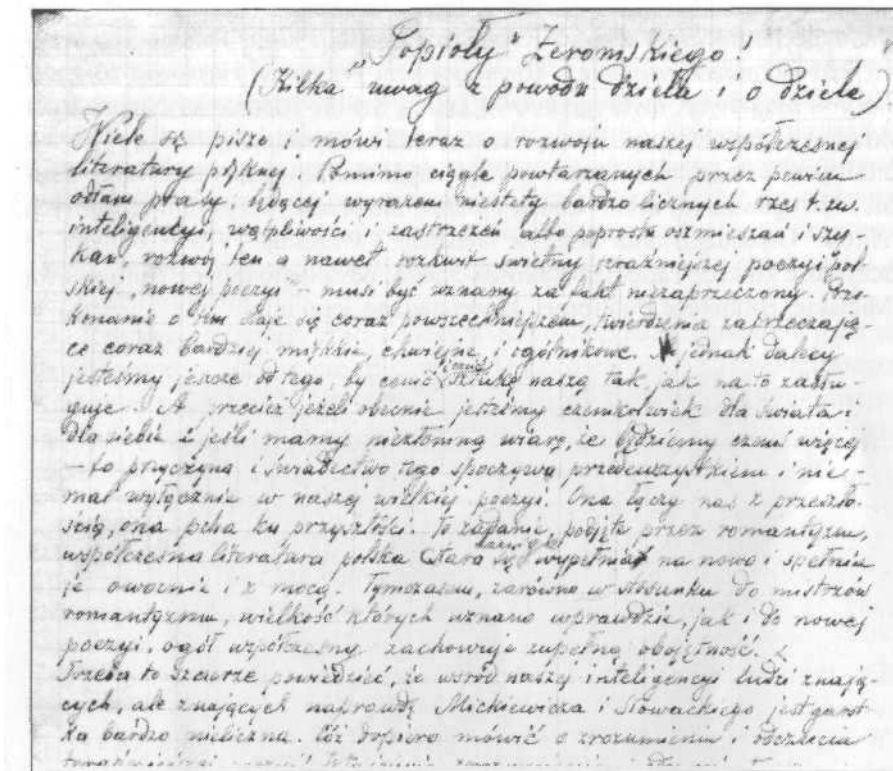 „Popioły" Żeromskiego!
(Kilka uwag z powodu dzieła i o dziele)
Wiele się pisze i mówi teraz o rozwoju naszej współczesnej
literatury pięknej. Pomimo ciągle powtarzanych przez pewien
odłam prasy, będącej wyrazem niestety bardzo licznych rzesz t. zw.
inteligentyi, wątpliwości i zastrzeżeń albo poprostu ośmieszań i szy-
kan, rozwój ten a nawet rozkwit świetny poezyi pol-
skiej, nowej poezyi – musi być uznany za fakt niezaprzeczony. Prze-
konanie o tem staje się coraz powszechniejszem, twierdzenia zaprzeczają-
ce coraz bardziej miękkie, chwiejne, i ogólnikowe. A jednak dalecy
jesteśmy jeszcze od tego, by cenić sztukę naszą tak, jak na to zasłu-
guje. A przecież jeżeli obecnie jesteśmy czemkolwiek dla świata i
dla siebie i jeśli mamy niezłomną wiarę, że będziemy czemś więcej
– to przyczyna i świadectwo tego spoczywa przedewszystkiem i nie-
mal wyłącznie w naszej wielkiej poezyi. Ona łączy nas z przeszło-
ścią, ona pcha ku przyszłości. To zadanie, podjęte przez romantyzm,
współczesna literatura polska stara się wypełniać na nowo i spełnia
je owocnie i z mocą. Tymczasem, zarówno w stosunku do mistrzów
romantyzmu, wielkość których uznano wprawdzie, jak i do nowej
poezyi, ogół współczesny zachowuje zupełną obojętność.
Trzeba to szczerze powiedzieć, że wśród naszej inteligencyi ludzi znają-
cych, ale znających naprawdę Mickiewicza i Słowackiego jest garst-
ka bardzo nieliczna. Cóż dopiero mówić o zrozumieniu i odczuciu